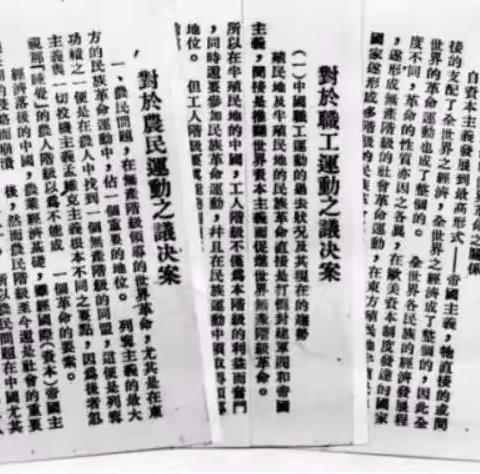 命之關係
自資本主義發展到最高形式——帝國主義，牠直接的或間
接的支配了全世界之經濟，全世界之經濟成了整個的，因此全
世界的革命運動也成了整個的。　全世界各民族的經濟發展程
度不同，革命的性質亦因之各異，在歐美資本制度發達的國家
，遂形成無產階級的社會革命運動，在東方殖民地半
國家遂形成多階級的民族
對於職工運動之議決案
（一）中國職工運動的過去狀況及其現在的趨勢
殖民地及半殖民地的民族革命直接是打倒封建軍閥和帝國
主義，間接是推翻世界資本主義而促進世界無產階級革命。
所以在半殖民地的中國，工人階級不僅為本階級的利益而奮鬥
，同時還要參加民族革命運動，并且在民族運動中須取得領導
地位。　但工人階級要
對於農民運動之議決案
一、農民問題，在無產階級領導的世界革命，尤其是在東
方的民族革命運動中，佔一個重要的地位。　列寧主義的最大
功績之一便是在農人中找到一個無產階級的同盟，這便是列寧
主義與一切投機主義孟雪維克主義根本不同之要點，因為後者忽
視那「睡覺」的農人階級以為不能成　一個革命的要素。
經濟落後的中國，農業經濟基礎，雖經國際（資本）帝國主
的侵略而崩潰　後，然而農民階級至今還是社會的重要
所以農民問題在中國尤其